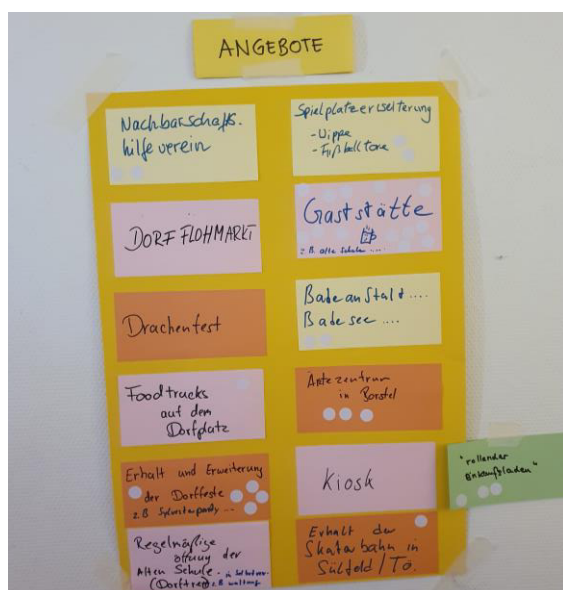 ANGEBOTE
Nachbarschafts-
hilfe verein
DORF FLOHMARKT
Drachenfest
Foodtrucks
auf dem
Dorfplatz
Erhalt und Erweiterung
der Dorffeste
z.B Sylvesterparty ...
Regelmäßige
öffnung der
Alten Schule
(Dorftreff)
z.B
Spielplatzerweiterung
- Wippe
- Fußballtore
Gaststätte
z.B. alte Schule ....
Badeanstalt ....
Badesee ....
Ärtezentrum
in Borstel
Kiosk
"rollender
Einkaufsladen"
Erhalt der
Skaterbahn in
Sülfeld / Tö.